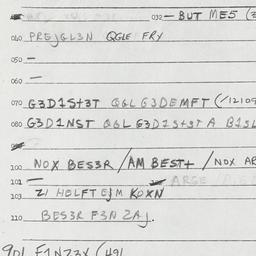 032 — BUT ME5 (3
040 PREJGL3N QGLE FRY
050 —
060 —
070 G3D1St3T QGL G3DEMFT (/12109
080 G3D1NST QGL G3D1St3T A B1SL
100 NOX BES3R / AM BEST+ / NOX AR
101 — ARGE
103 21 HELFT EJM KOXN
110 BES3R F3N 2AJ.
901 F1NZ3X (491